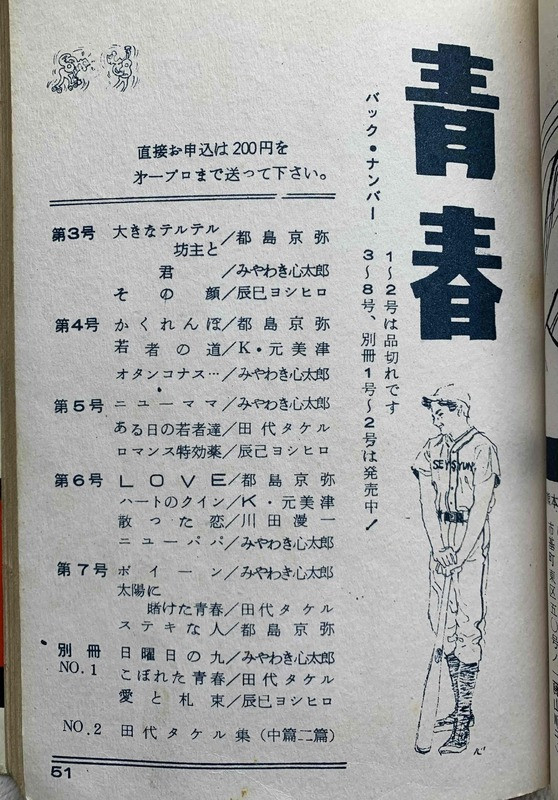 青春
バック・ナンバー
1〜2号は品切れです
3〜8号、別冊1号〜2号は発売中!
直接お申込は200円を
オープロまで送って下さい。
第3号 大きなテルテル
坊主と/都島京弥
君/みやわき心太郎
その顔/辰巳ヨシヒロ
第4号 かくれんぼ/都島京弥
若者の道/K・元美津
オタンコナス…/みやわき心太郎
第5号 ニューママ/みやわき心太郎
ある日の若者達/田代タケル
ロマンス特効薬/辰己ヨシヒロ
第6号 LOVE/都島京弥
ハートのクイン/K・元美津
散った恋/川田漫一
ニューパパ/みやわき心太郎
第7号 ボイーン/みやわき心太郎
太陽に
賭けた青春/田代タケル
ステキな人/都島京弥
別冊 日曜日の九/みやわき心太郎
NO.1 こぼれた青春/田代タケル
愛と札束/辰巳ヨシヒロ
NO.2 田代タケル集(中篇二篇)
SEYSYUN
51